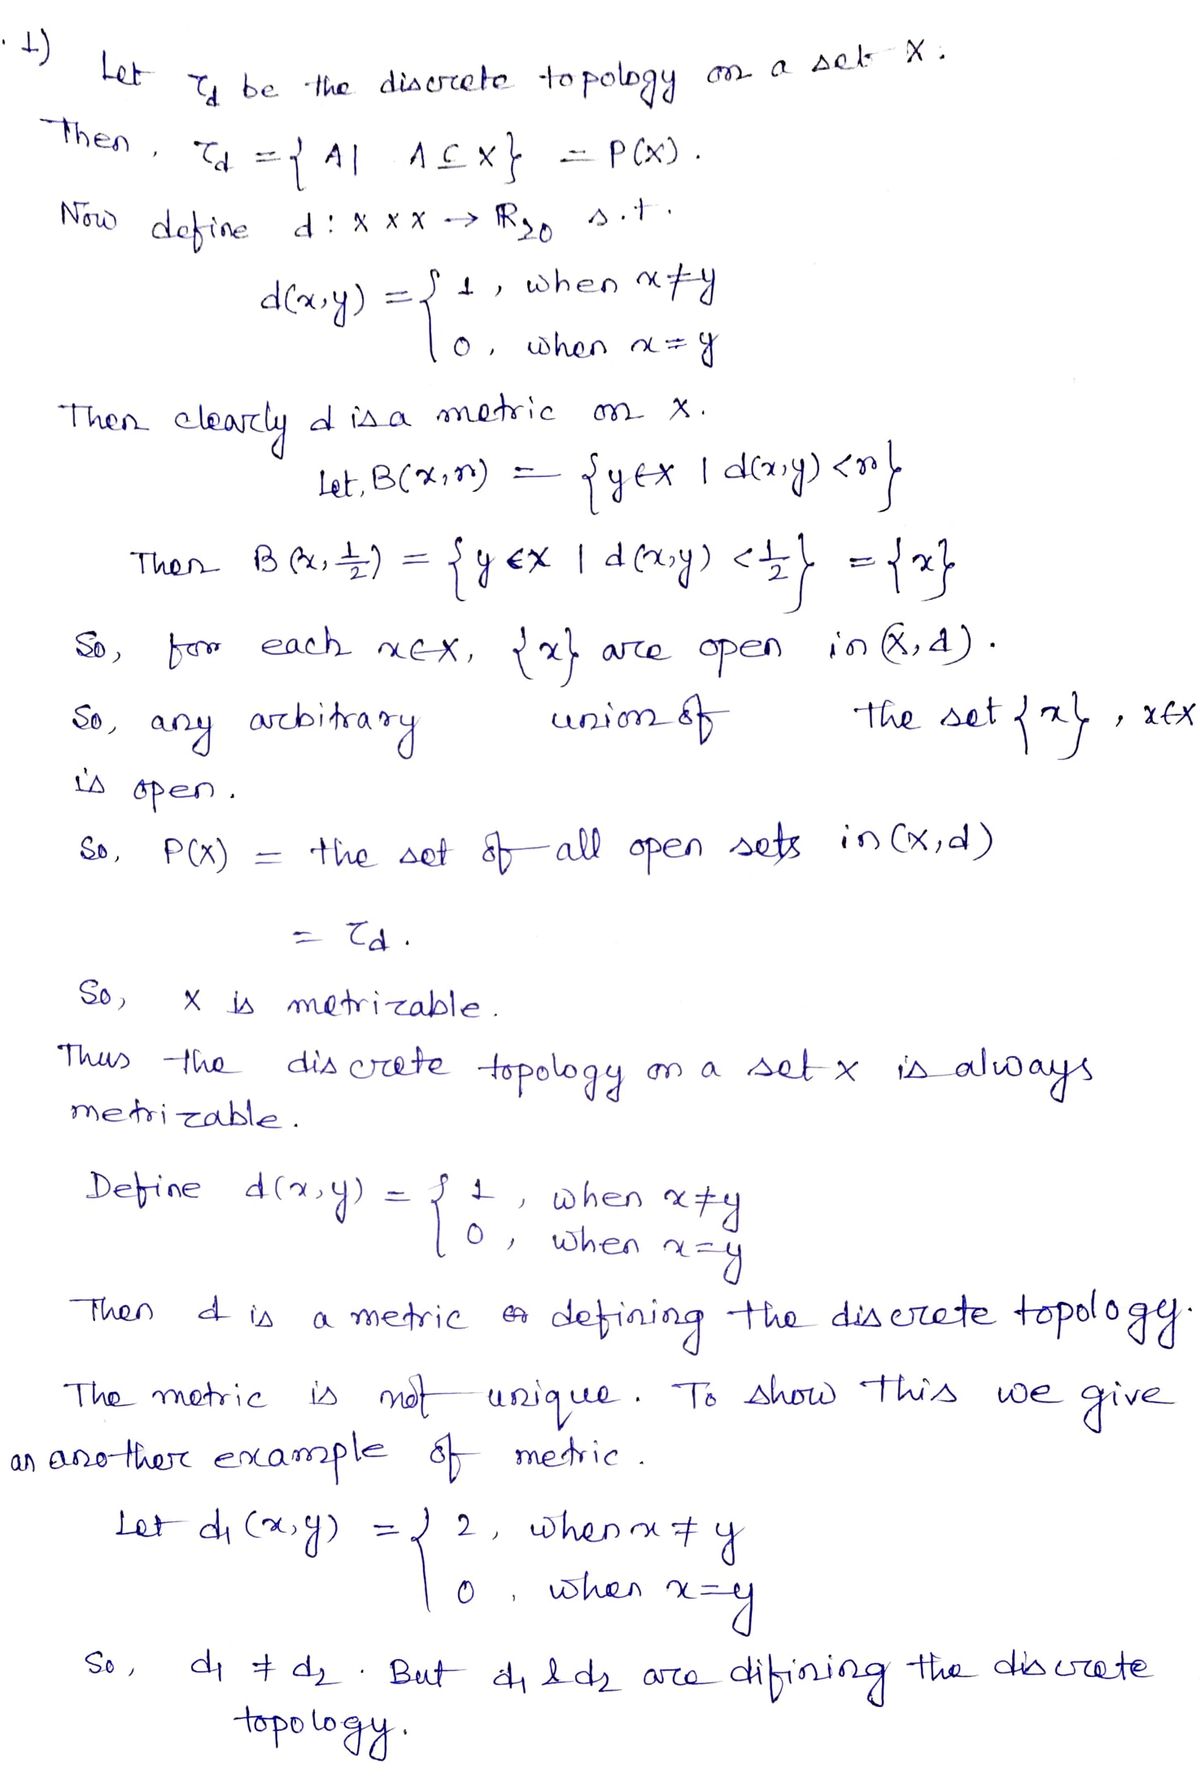 . 1)
Let τ_d be the discrete topology on a set X.
Then, τ_d = { A | A ⊆ X } = P(X).
Now define d : X × X → ℝ≥0 s.t.
d(x,y) = { 1, when x ≠ y
0, when x = y
Then clearly d is a metric on X.
Let, B(x,r) = { y ∈ X | d(x,y) < r }
Then B(x, 1/2) = { y ∈ X | d(x,y) < 1/2 } = {x}
So, for each x ∈ X, {x} are open in (X, d).
So, any arbitrary union of the set {x}, x ∈ X
is open.
So, P(X) = the set of all open sets in (X,d)
= τ_d.
So, X is metrizable.
Thus the discrete topology on a set X is always
metrizable.
Define d(x,y) = { 1, when x ≠ y
0, when x = y
Then d is a metric defining the discrete topology.
The metric is not unique. To show this we give
an another example of metric.
Let d₁(x,y) = { 2, when x ≠ y
0, when x = y
So, d₁ ≠ d₂. But d₁ & d₂ are difining the discrete
topology.